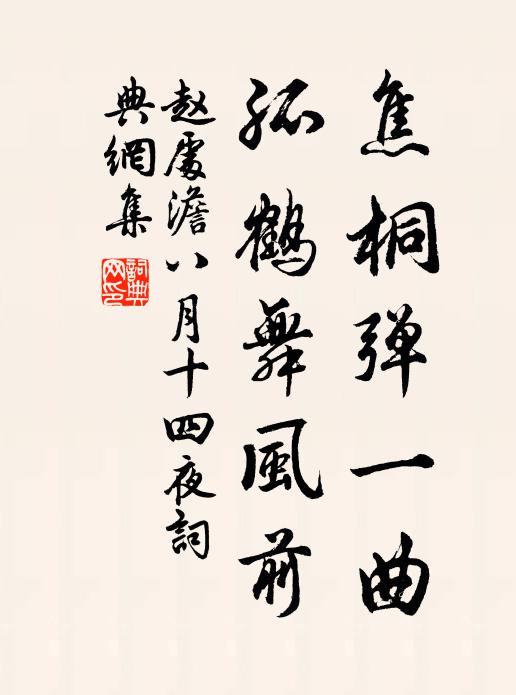 焦桐弹一曲
孤鹤舞風前
赵處澹八月十四夜詞
典網集
詞典网印